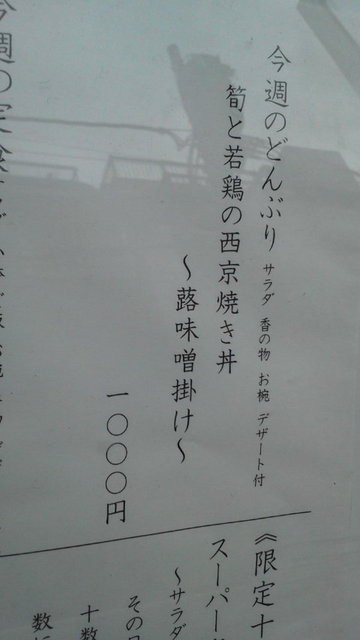 今週のどんぶり サラダ 香の物 お椀 デザート付
筍と若鶏の西京焼き丼
～蕗味噌掛け～
一〇〇〇円
今週の定食
《限定十
スーパー
～サラダ
その日
十数
数に